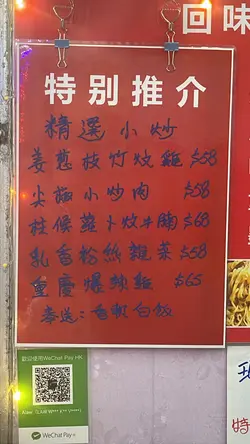 回味
特别推介
精選小炒
姜蔥枝竹炆雞 $58
尖椒小炒肉 $58
柱侯蘿卜炆牛腩 $68
乳香粉絲雜菜 $58
重慶爆辣雞 $65
奉送:香軟白飯
歡迎使用WeChat Pay HK
WeChat Pay